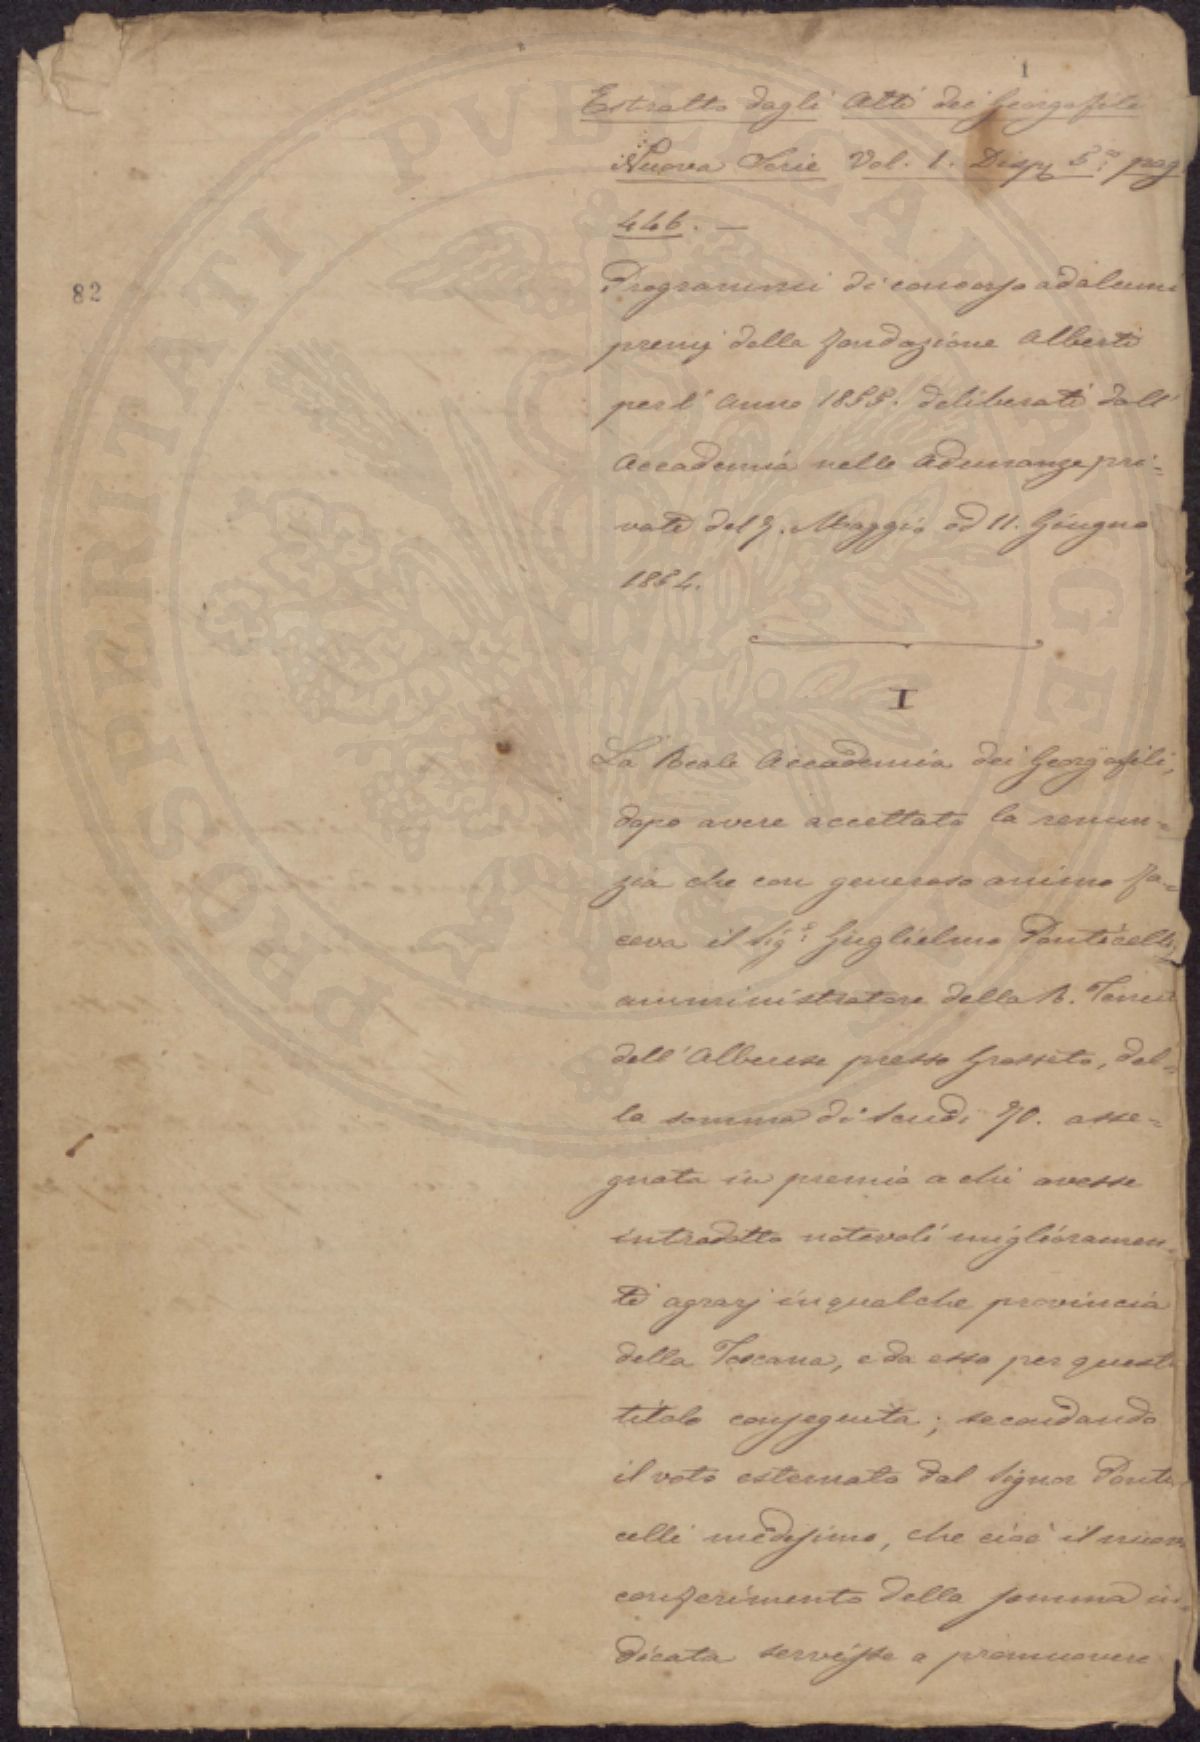 1
Estratto dagli Atti dei Georgofili
Nuova Serie Vol. 1. Disp. 5.a pag
446. —
82
Programmi di concorso ad alcuni
premj della fondazione Alberti
per l'Anno 1855. deliberati dall'
Accademia nelle Adunanze pri=
vate del 7. Maggio ed 11. Giugno
1854.
I
La Reale Accademia dei Georgofili,
dopo avere accettato la renun=
zia che con generoso animo fa=
ceva il Sig.e Guglielmo Ponticelli,
amministratore della R. Tenuta
dell'Alberese presso Grosseto, del=
la somma di scudi 70. asse=
gnata in premio a chi avesse
introdotto notevoli miglioramen=
ti agrarj in qualche provincia
della Toscana, e da esso per questo
titolo conseguita; secondando
il voto esternato dal Signor Ponti
celli medesimo, che cioè il nuovo
conferimento della somma in=
dicata servisse a promuovere
PROSPERITATI PVBLICAE AVGENDAE